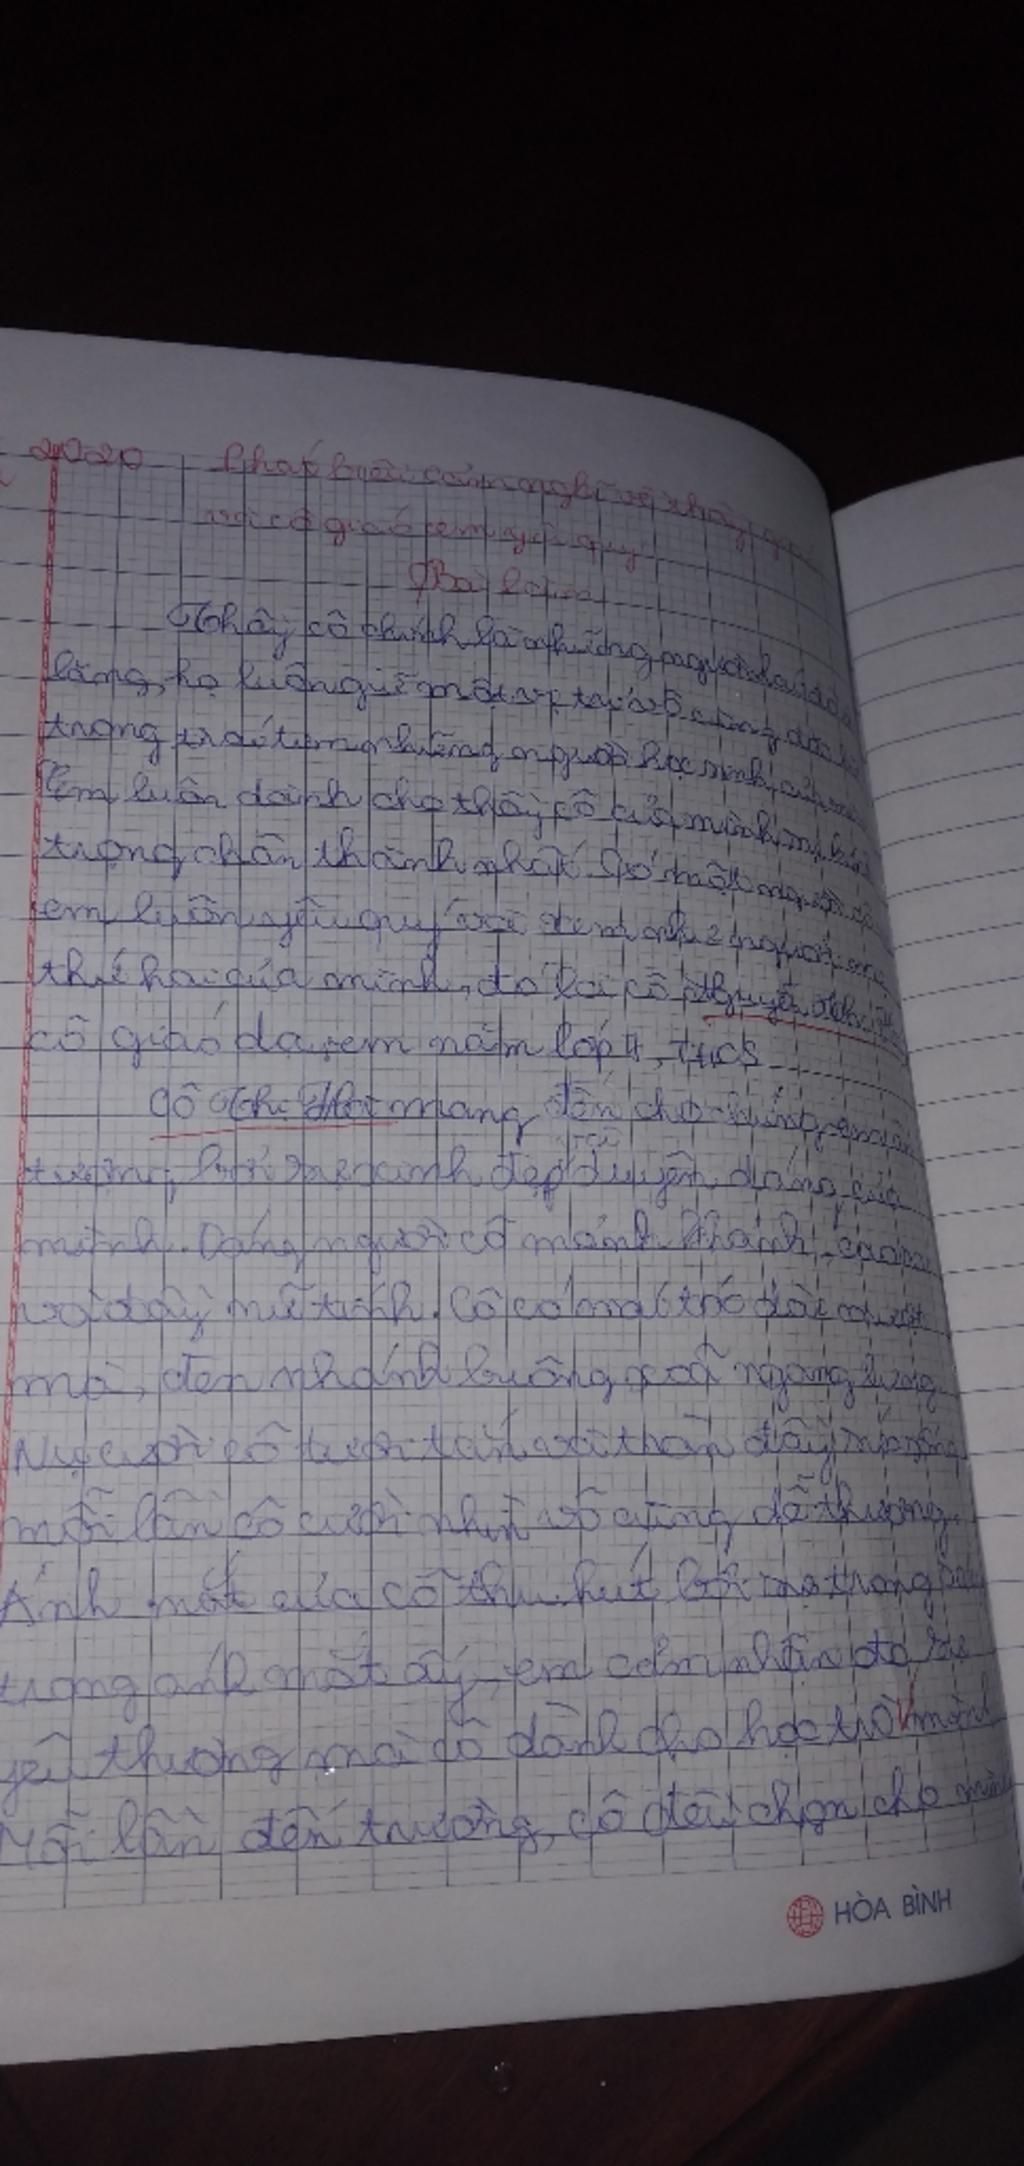 2020 Phát biểu cảm nghĩ về thầy
cô giáo em yêu quý
Bài làm
Thầy cô chính là những người lái đò
lặng, họ luôn giữ một vị trí vô cùng
trong trái tim những người học sinh
Em luôn dành cho thầy cô của mình
trọng chân thành nhất. Có một người
em luôn yêu quý và xem như người
thứ hai của mình, đó là cô
cô giáo dạy em năm lớp 4, THCS
cô mang đến cho chúng em ấn
tượng bởi đẹp duyên dáng của
mình. Dáng người cô mảnh khảnh, cao
với đầy nữ tính. Cô có mái tóc dài mượt
mà, đen nhánh buông xoã ngang lưng.
Nụ cười cô tươi tắn với hàm
mỗi lần cô cười nhìn vô cùng dễ thương.
Ánh mắt của cô thu hút bởi trong
trong ánh mắt ấy, em cảm nhận đó là
yêu thương mà cô dành cho học trò mình
Mỗi lần đến trường, cô đều chọn cho mình
HÒA BÌNH